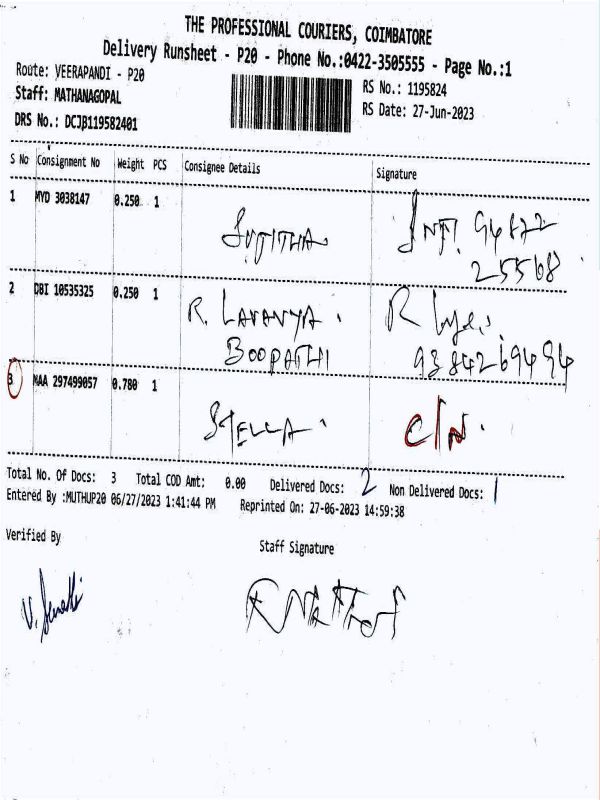 THE PROFESSIONAL COURIERS, COIMBATORE
Delivery Runsheet - P20 - Phone No.:0422-3505555 - Page No.:1
Route: VEERAPANDI - P20
Staff: MATHANAGOPAL
DRS No.: DCJB119582401
RS No.: 1195824
RS Date: 27-Jun-2023
S No Consignment No Weight PCS Consignee Details Signature
1 MYD 3038147 0.250 1
SUJITHA
25568
2 DBI 10535325 0.250 1 R. LAVANYA.
BOOPATHI 9384269494
3 MAA 297499057 0.780 1 STELLA. C/N.
Total No. Of Docs: 3 Total COD Amt: 0.00 Delivered Docs: 2 Non Delivered Docs: 1
Entered By :MUTHUP20 06/27/2023 1:41:44 PM Reprinted On: 27-06-2023 14:59:38
Verified By
Staff Signature